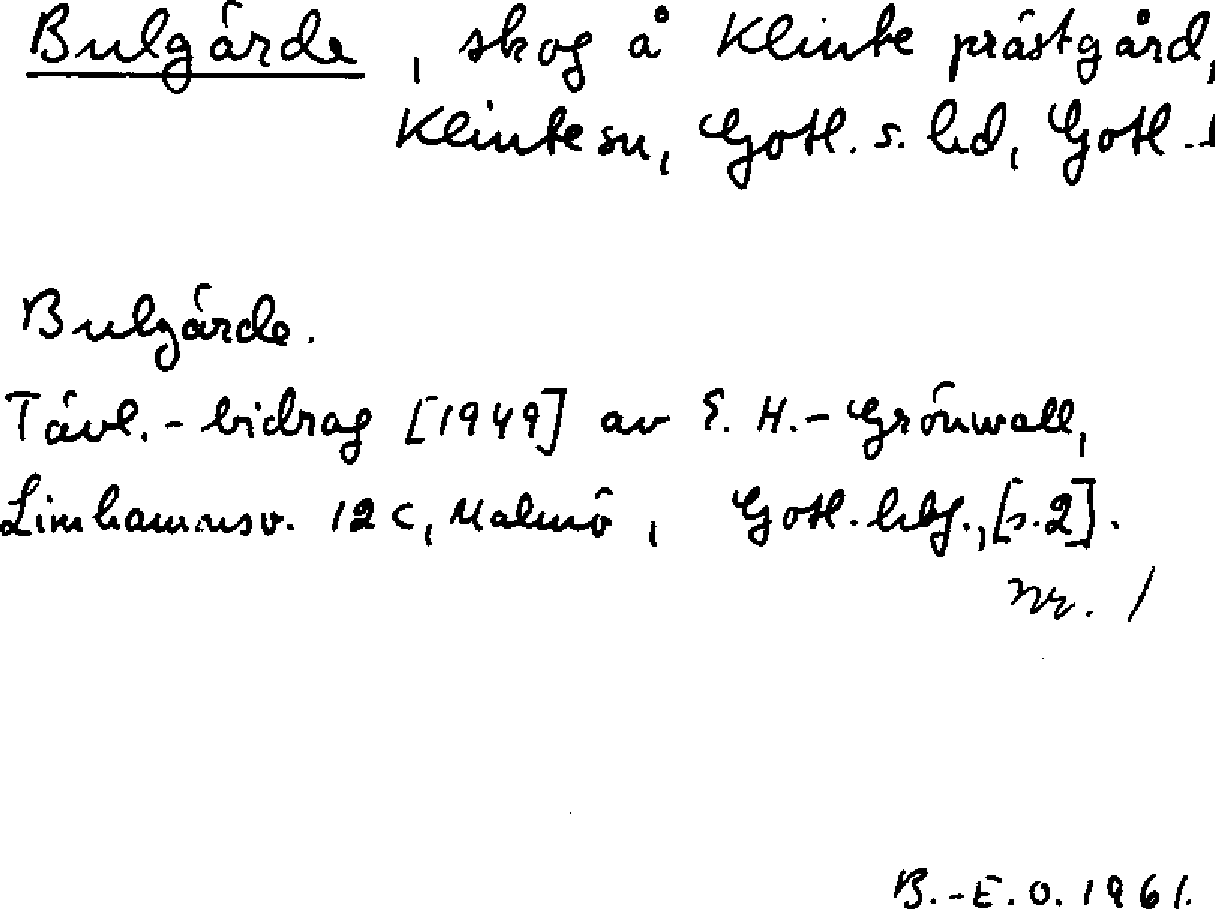 Bulgärde, skog å Klinte prästgård,
Klinte sn, Gotl. s. hd, Gotl.
Bulgärde.
Tävl.-bidrag [1949] av E. H.-Grönwall,
Limhamnsv. 12 C, Malmö, Gotl. hbf., [s.2].
nr. 1
B.-E.O. 1961.